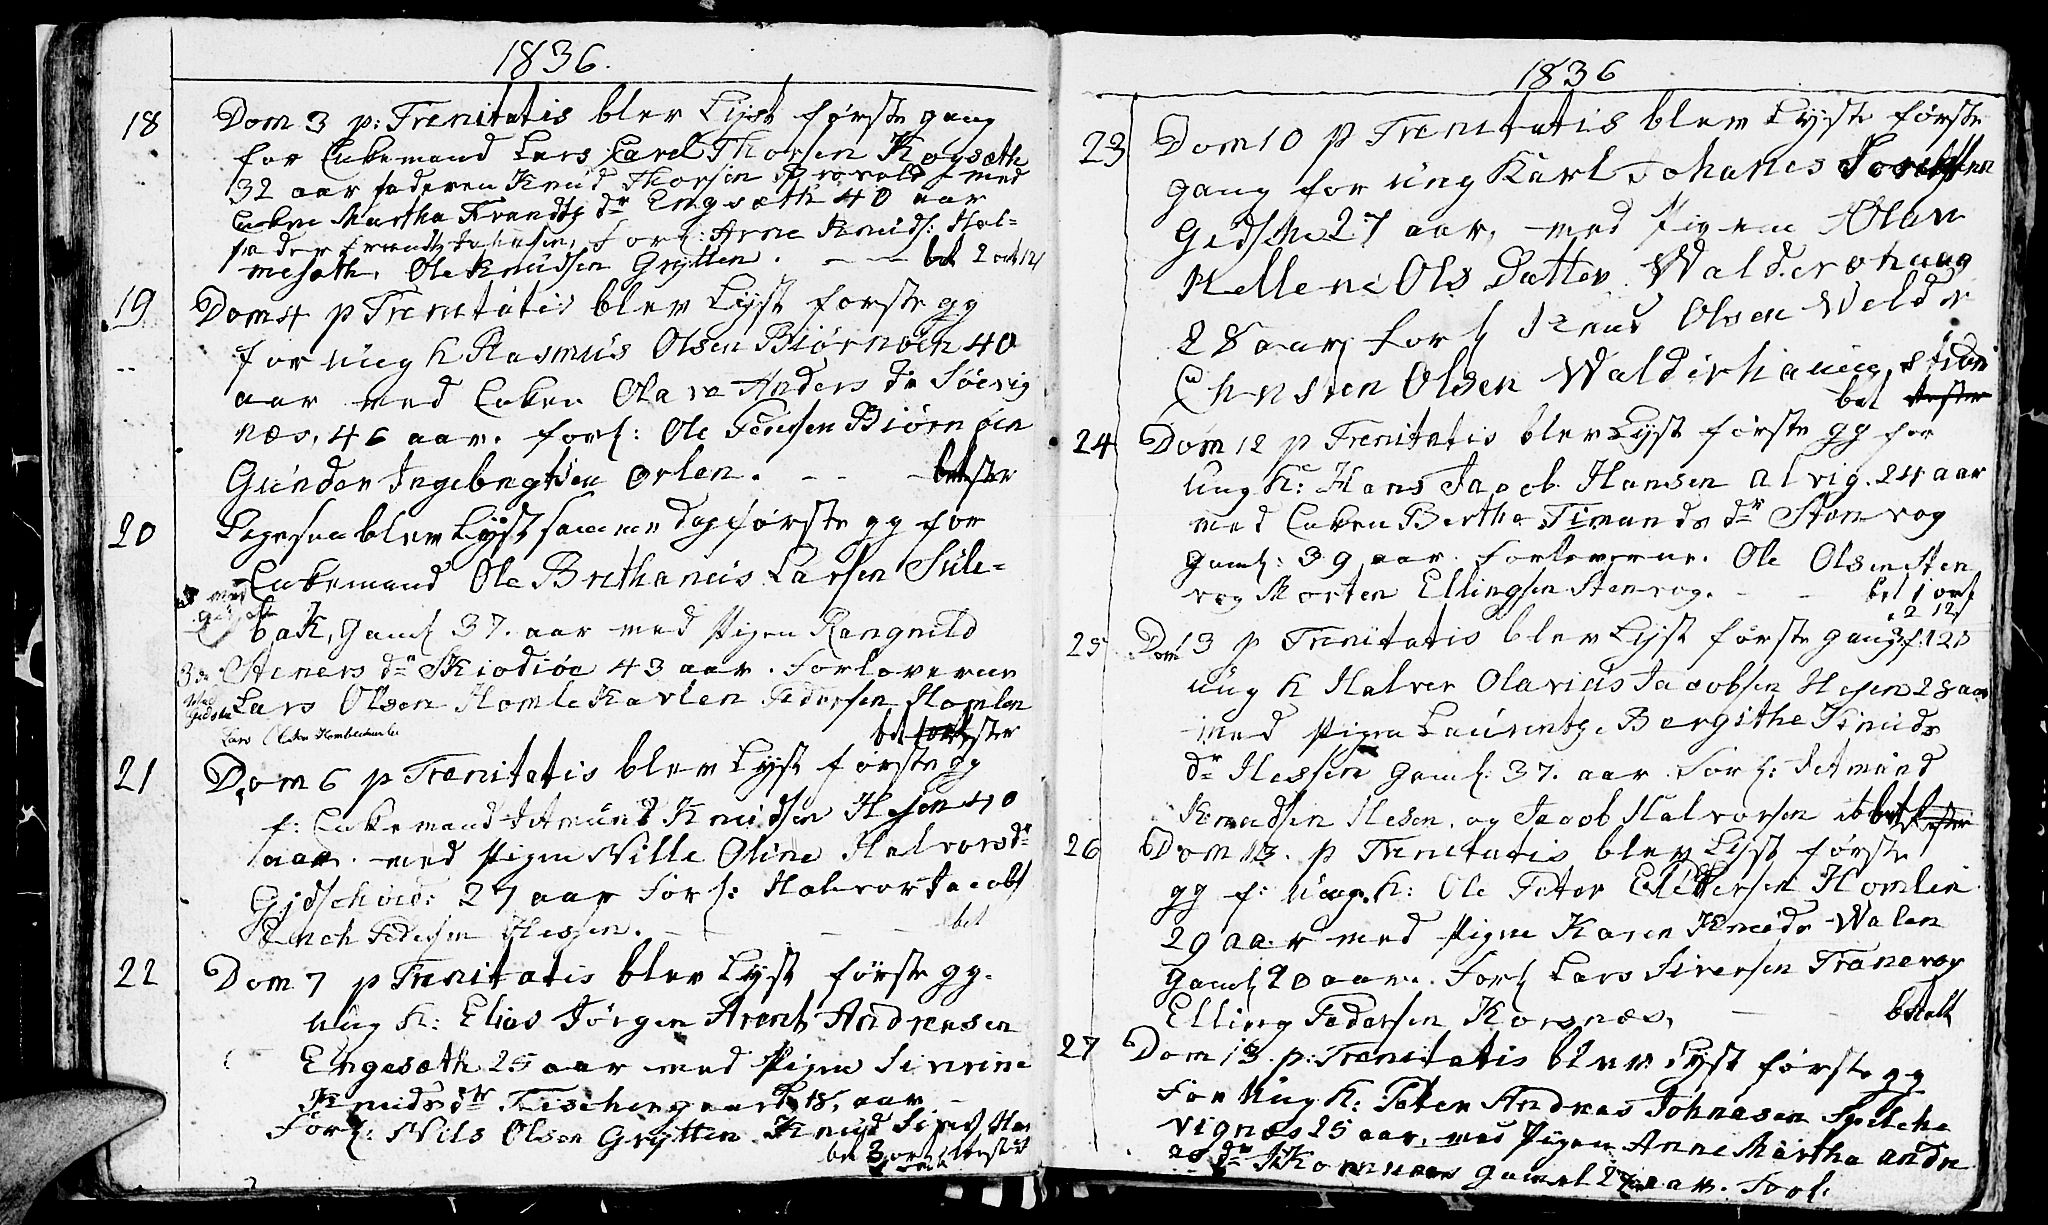 1836.
18 Dom 3 p: Trenitatis blev Lyst første gang
for Enkemand Lars Carel Thorsen Kogsæth
32 aar faderen Knud Thorsen med
Enken Martha Frandtz dr Engsæth 40 aar
fader frandtz Johnsen, Forl: Arne Knuds: Hol=
mesæth, Ole Knudsen Grytten. - - bet 2 ort 12 s
19 Dom 4 p Trenitatis blev Lyst første gg
for ung k Rasmus Olsen Biørnøen 40
aar med Enken Olave Anders dr Søevig
næs, 46 aar. forl: Ole Pedersen Biørnøen
Gunder Ingebrigtsen Orlen. - -
20 Ligesaa blev Lyst samme dag første gg for
Enkemand Ole Brithaneis Larsen Sule=
bak, Gaml 37. aar med Pigen Rangnild
Steners dr Skiodiøe 43 aar. Forloverne
Lars Olsen Homlekarlen Pedersen Homlen
Lars Olsen
bet
21 Dom 6 p Trenitatis blev Lyst første gg
f: Enkemand Knudsen Hesen 40
aar. med Pigen Nille Oline Halvorsdr
27 aar Forl: Halvor Jacobs
Pedersen Hessen. - - - bet
22 Dom 7 p Trenitatis blev Lyst første gg.
ung k: Elias Jørgen Arentz Andresen
Engesæth 25 aar med Pigen Sivrine
Knudsdtr Fischergaard 18, aar
Forl: Nils Olsen Grytten. Knud
bet 3 ort
1836
23 Dom 10 p Trenitatis blev Lyste første
gang for ung Karl Johanes
Gidske 27 aar, med Pigene Olav
Hellene Ols Datter Walderøhaug
28 aar forl Knud Olsen Welde
Christen Olsen Walderhaug
bet
24 Dom 12 p Trenitatis blev Lyst første gg for
ung k: Hans Jacob Hansen Alvig. 24 aar
med Enken Berthe Timands dr Stenvog
gaml: 39 aar. Forloverne. Ole Olsen Sten
vog Morten Ellingsen Stenvog. - - bet 1 ort
2 12 s
25 Dom 13 p Trenitatis blev Lyst første gang
ung k Halver Olavius Jacobsen Hesen 28 aar
med Pigen Laurentze Bergithe Knuds
dr Hessen gaml: 37. aar Forl:
Knudsen Hesen. og Jacob Halvorsen
26 Dom 13. p Trenitatis blev Lyst første
gg f: ung. k: Ole Peter Homlen
29 aar med Pigen Karen Knuds Walen
gaml 20 aar. Forl Lars Siversen Tranevog
Elling Pedersen Korsnæs, - - betalt
27 Dom 13. p: Trenitatis blev Lyst første gg
for ung k: Peter Andreas Johnasen
vignæs 25 aar, med Pigen Anne Martha Andre
as dr gamel aar. Forl: